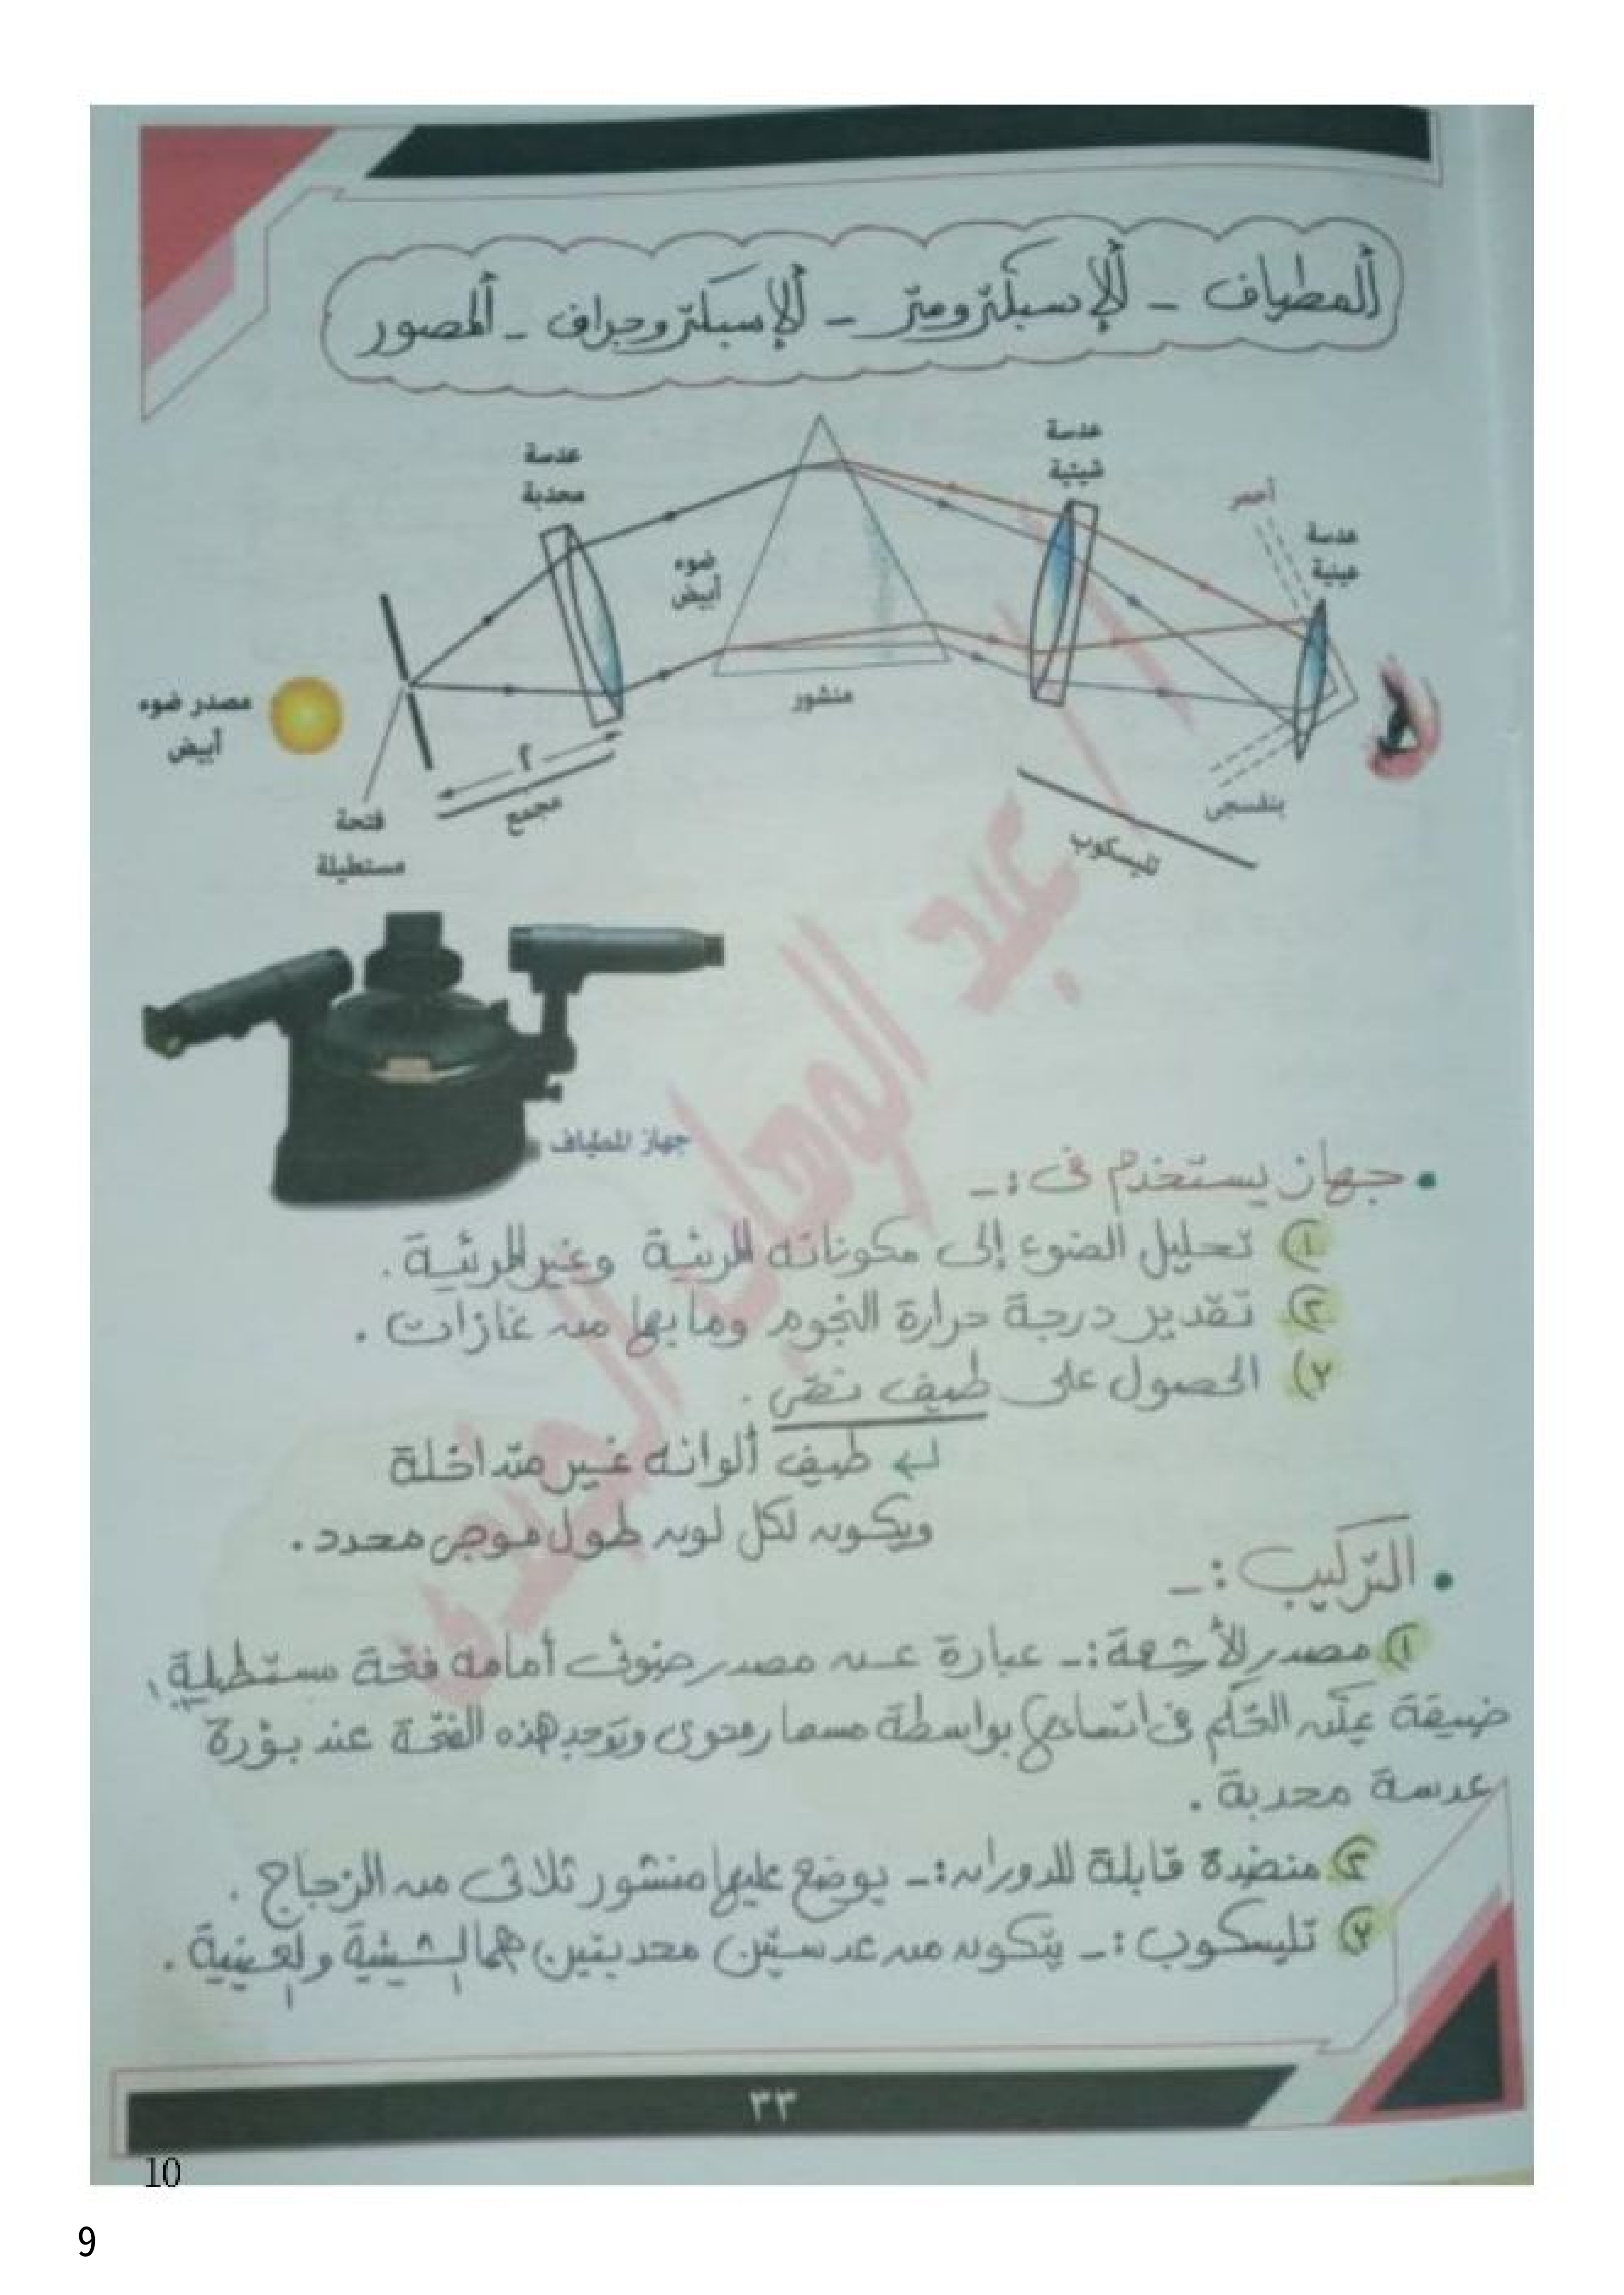 المطياف - الإسبكترومتر - الإسبكتروجراف - المصور
عدسة
محدبة
عدسة
شيئية
أحمر
عدسة
عينية
ضوء
أبيض
منشور
مصدر ضوء
أبيض
فتحة
مستطيلة
مجمع
تليسكوب
بنفسجى
جهاز المطياف
• جهاز يستخدم فى :-
١) تحليل الضوء إلى مكوناته المرئية وغير المرئية .
٢) تقدير درجة حرارة النجوم وما بها من غازات .
٣) الحصول على طيف نقى .
طيف ألوانه غير متداخلة
ويكون لكل لون طول موجى محدد .
• التركيب :-
١) مصدر الأشعة :- عبارة عن مصدر ضوئى أمامه فتحة مستطيلة
ضيقة يمكن التحكم فى اتساعها بواسطة مسمار محوى وتوجد هذه الفتحة عند بؤرة
عدسة محدبة .
٢) منضدة قابلة للدوران :- يوضع عليها منشور ثلاثى من الزجاج .
٣) تليسكوب :- يتكون من عدستين محدبتين هما الشيئية والعينية .
٣٣
10
9